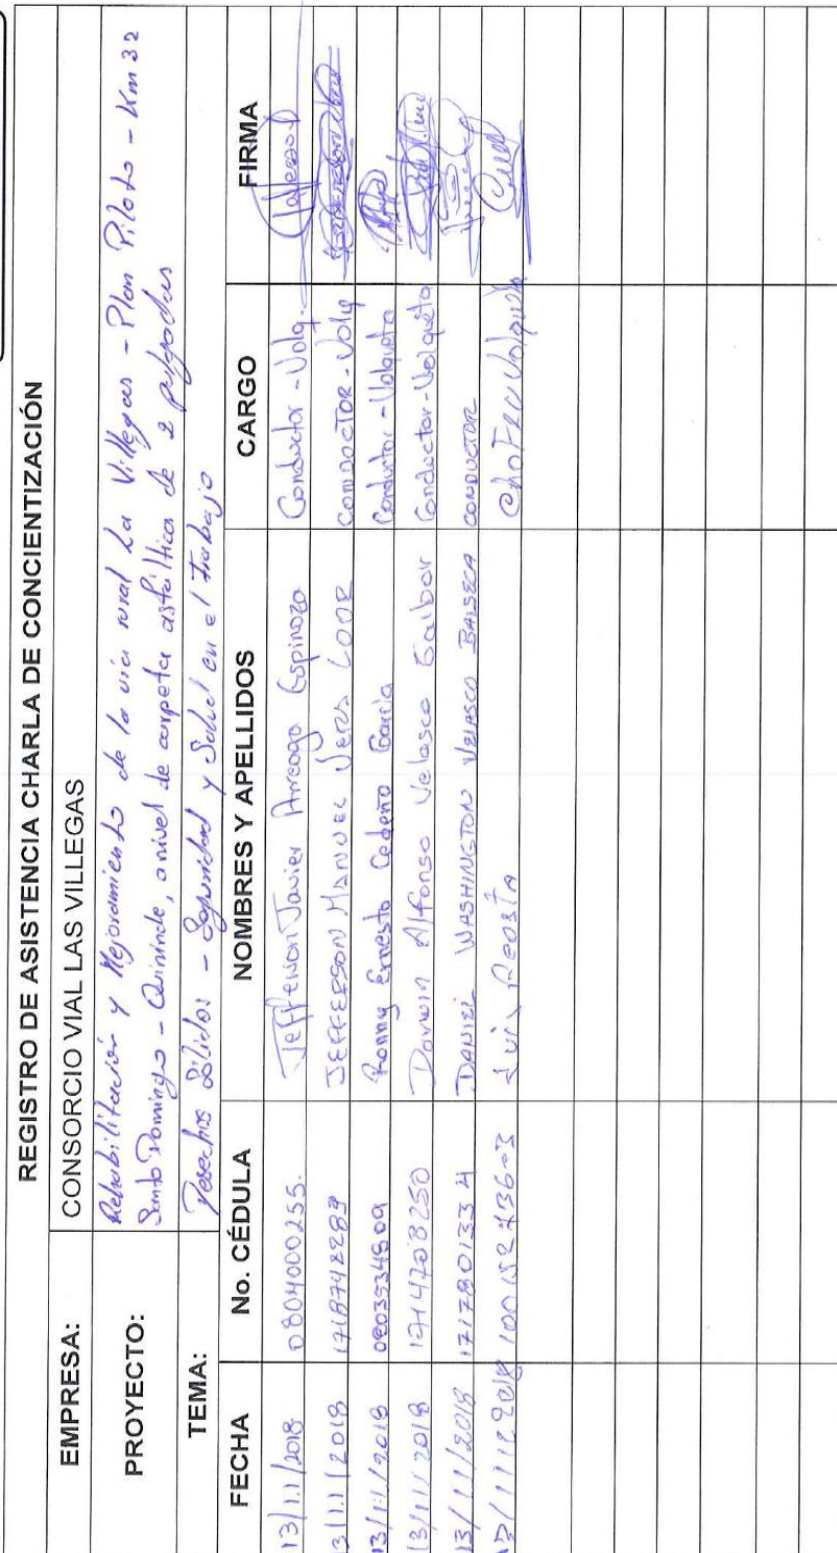 REGISTRO DE ASISTENCIA CHARLA DE CONCIENTIZACIÓN
EMPRESA: CONSORCIO VIAL LAS VILLEGAS
PROYECTO: Rehabilitación y Mejoramiento de la vía rural La Villegas - Plan Piloto - Km 32
Santo Domingo - Quininde, a nivel de carpeta asfáltica de 2 pulgadas
TEMA: Desechos Sólidos - Seguridad y Salud en el trabajo
FECHA No. CÉDULA NOMBRES Y APELLIDOS CARGO FIRMA
13/11/2018 0804000255. Jefferson Javier Arreaga Espinoza Conductor - Volq.
3/11/2018 1718742289 JEFFERSON MANUEL VERA LOOR CONDOCTOR - Volq
13/11/2018 Ronny Ernesto Cedeño García Conductor - Volqueta
13/11/2018 1714208250 Darwin Alfonso Velasco Galbor Conductor - Volqueta
13/11/2018 1717801334 DANIEL WASHINGTON VELASCO BALSECA CONDUCTOR
13/11/2018 100152736-3 Luis Acosta Chofer Volqueta